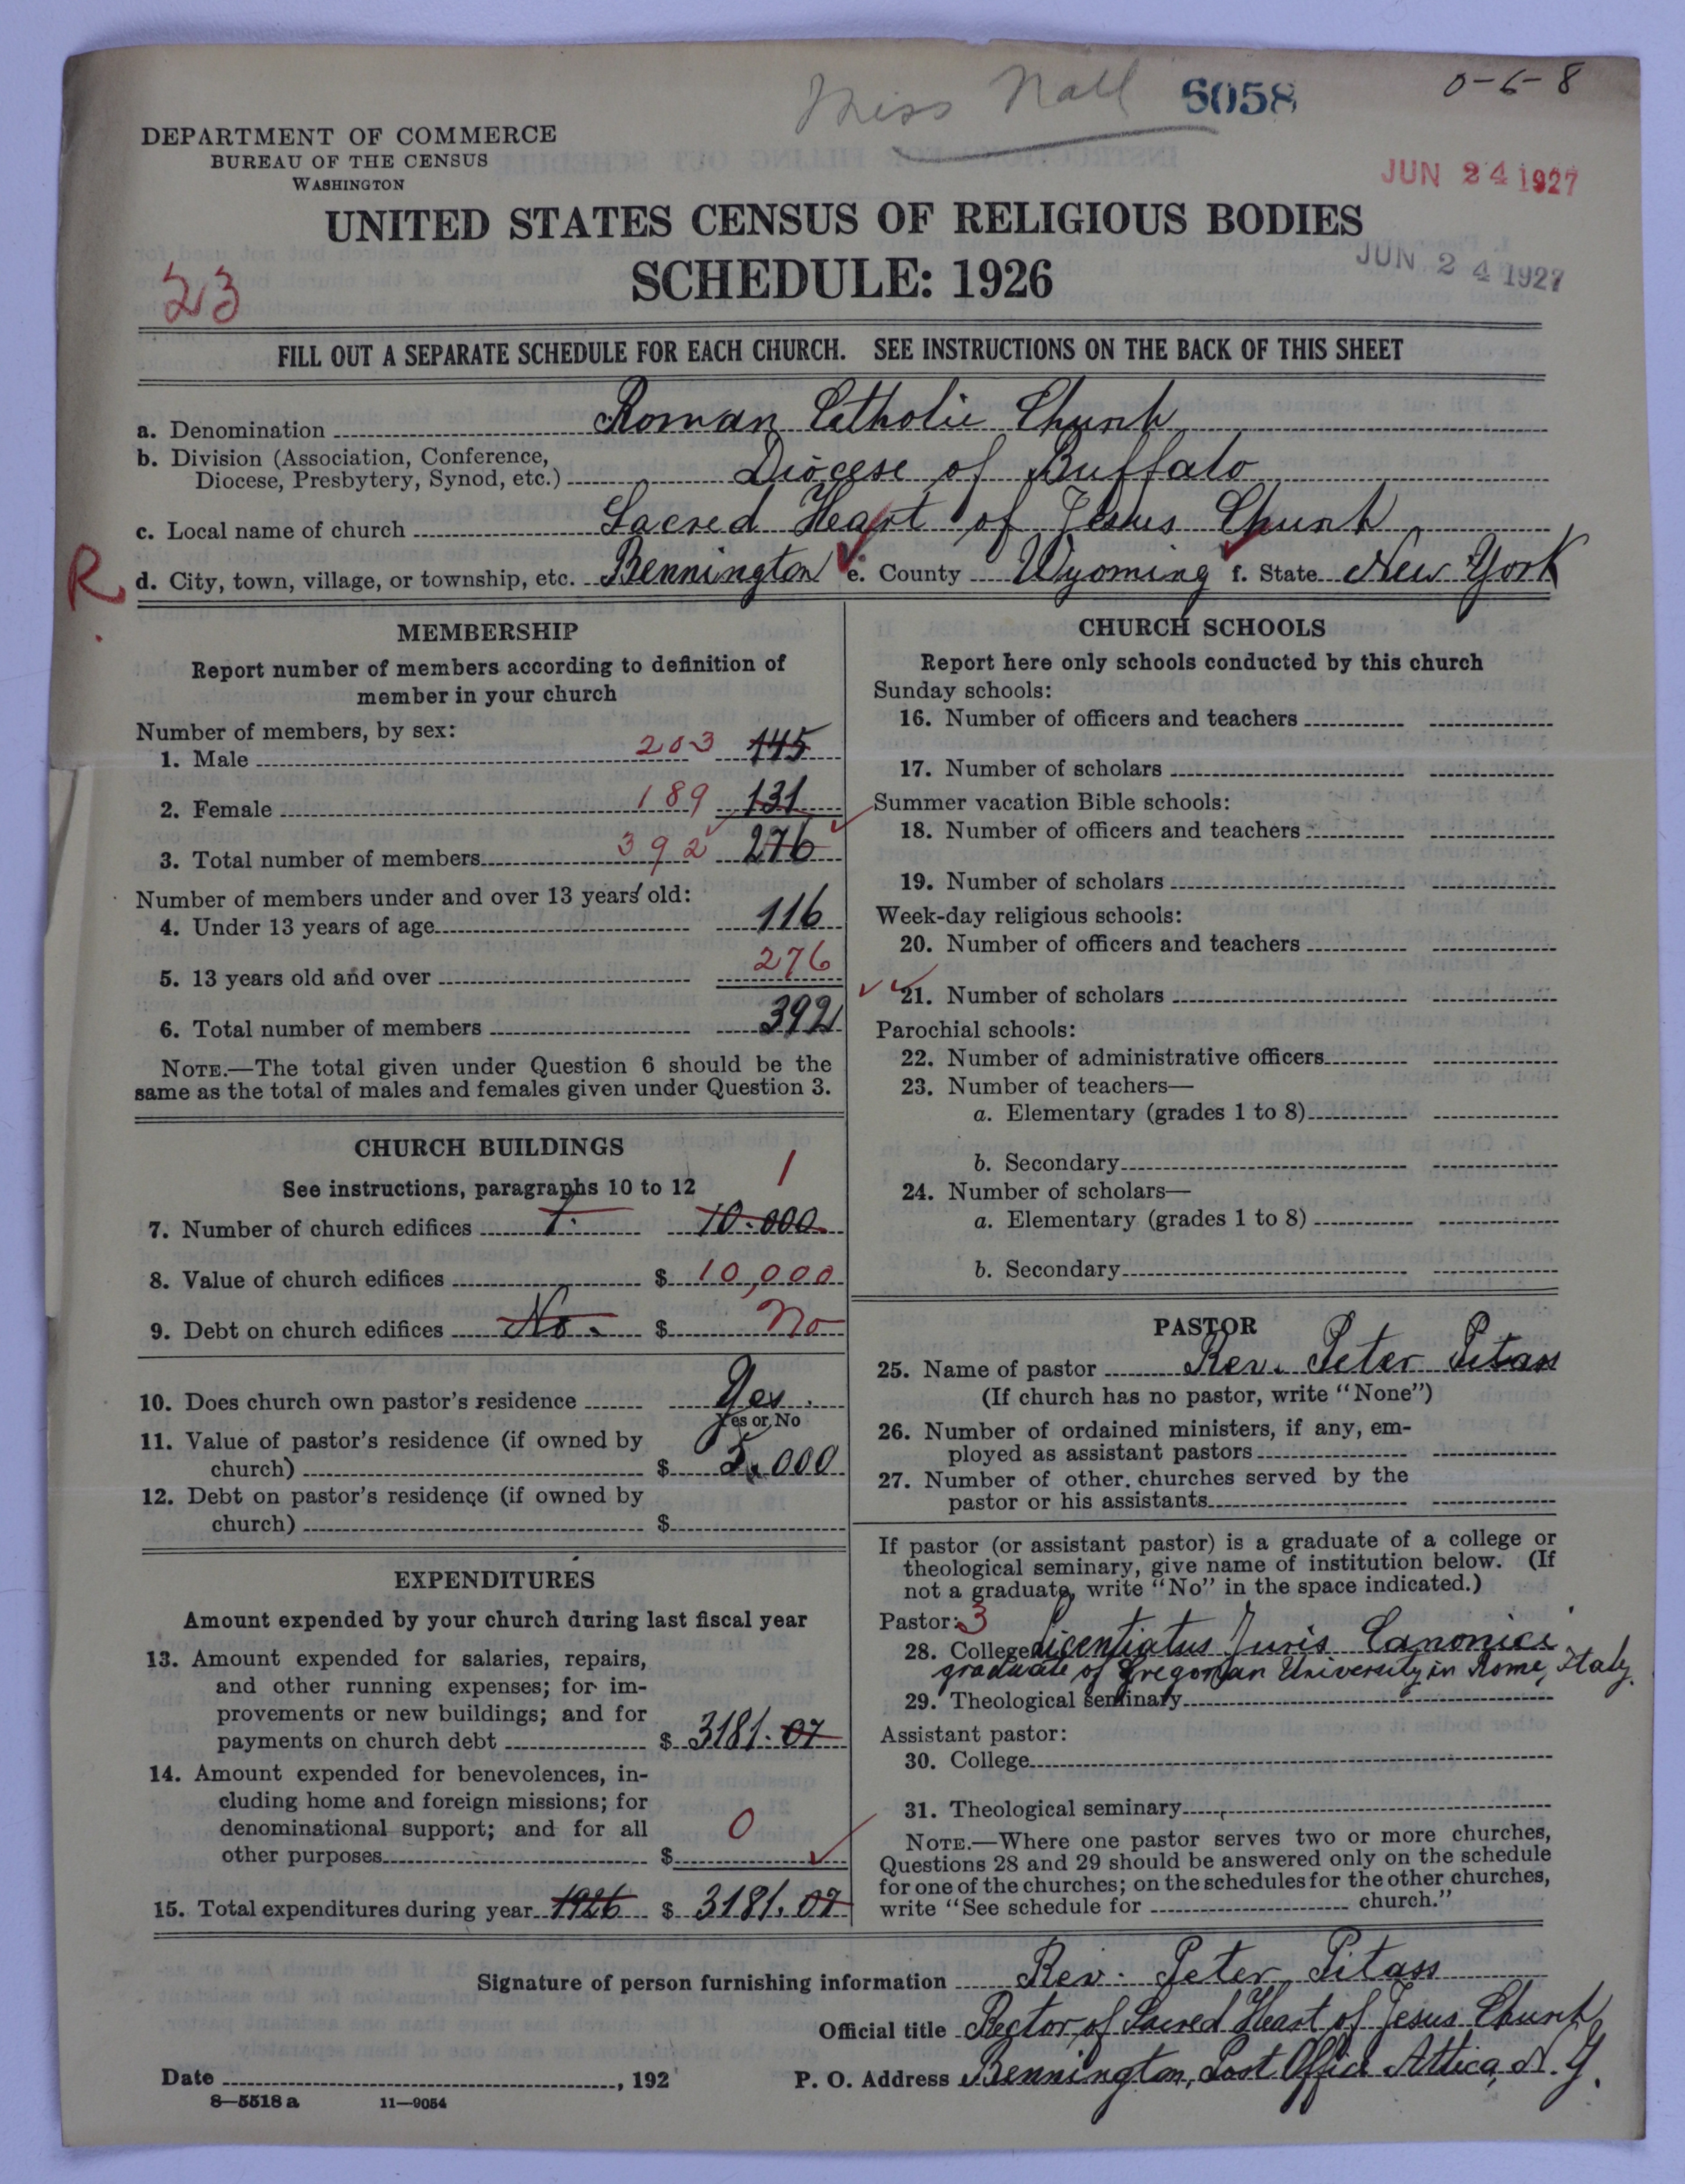 Miss Nall 6058 0-6-8
DEPARTMENT OF COMMERCE
BUREAU OF THE CENSUS
WASHINGTON
JUN 24 1927
UNITED STATES CENSUS OF RELIGIOUS BODIES
JUN 24 1927
SCHEDULE: 1926
23
FILL OUT A SEPARATE SCHEDULE FOR EACH CHURCH. SEE INSTRUCTIONS ON THE BACK OF THIS SHEET
a. Denomination Roman Catholic Church
b. Division (Association, Conference,
Diocese, Presbytery, Synod, etc.) Diocese of Buffalo
c. Local name of church Sacred Heart of Jesus Church
R d. City, town, village, or township, etc. Bennington e. County Wyoming f. State New York
MEMBERSHIP
Report number of members according to definition of
member in your church
Number of members, by sex:
1. Male 203 145
2. Female 189 131
3. Total number of members 392 276
Number of members under and over 13 years old:
4. Under 13 years of age 116
5. 13 years old and over 276
6. Total number of members 392
NOTE.—The total given under Question 6 should be the
same as the total of males and females given under Question 3.
CHURCH BUILDINGS
See instructions, paragraphs 10 to 12 1
7. Number of church edifices 1. 10.000
8. Value of church edifices $ 10,000
9. Debt on church edifices No. $ no
10. Does church own pastor's residence Yes.
Yes or No
11. Value of pastor's residence (if owned by
church) $ 5,000
12. Debt on pastor's residence (if owned by
church) $
EXPENDITURES
Amount expended by your church during last fiscal year
13. Amount expended for salaries, repairs,
and other running expenses; for im-
provements or new buildings; and for
payments on church debt $ 3181.07
14. Amount expended for benevolences, in-
cluding home and foreign missions; for
denominational support; and for all
other purposes $ 0
15. Total expenditures during year 1926 $ 3181.07
CHURCH SCHOOLS
Report here only schools conducted by this church
Sunday schools:
16. Number of officers and teachers
17. Number of scholars
Summer vacation Bible schools:
18. Number of officers and teachers
19. Number of scholars
Week-day religious schools:
20. Number of officers and teachers
21. Number of scholars
Parochial schools:
22. Number of administrative officers
23. Number of teachers—
a. Elementary (grades 1 to 8)
b. Secondary
24. Number of scholars—
a. Elementary (grades 1 to 8)
b. Secondary
PASTOR
25. Name of pastor Rev. Peter Pitass
(If church has no pastor, write "None")
26. Number of ordained ministers, if any, em-
ployed as assistant pastors
27. Number of other churches served by the
pastor or his assistants
If pastor (or assistant pastor) is a graduate of a college or
theological seminary, give name of institution below. (If
not a graduate, write "No" in the space indicated.)
Pastor: 3
28. College Licentiatus Juris Canonici
graduate of Gregorian University in Rome, Italy.
29. Theological seminary
Assistant pastor:
30. College
31. Theological seminary
NOTE.—Where one pastor serves two or more churches,
Questions 28 and 29 should be answered only on the schedule
for one of the churches; on the schedules for the other churches,
write "See schedule for church."
Signature of person furnishing information Rev. Peter Pitass
Official title Rector of Sacred Heart of Jesus Church
Date , 192 P. O. Address Bennington, Post Office Attica, N.Y.
8—5518 a 11—9054